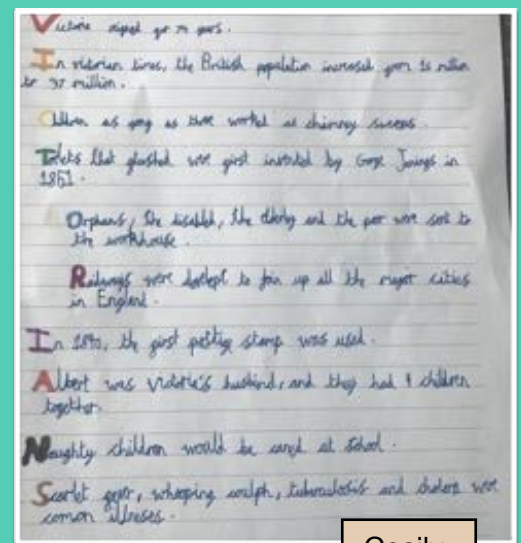 Victoria reigned for 70 years.
In victorian times, the British population increased from 16 million
to 37 million.
Children as young as three worked as chimney sweeps.
Toilets that flushed were first invented by George Jennings in
1851.
Orphans, the disabled, the elderly and the poor were sent to
the workhouse.
Railways were to join up all the major cities
in England.
In 1840, the first postage stamp was used.
Albert was Victoria's husband, and they had 9 children
together.
Naughty children would be caned at school.
Scarlet fever, whooping cough, tuberculosis and cholera were
common illnesses.